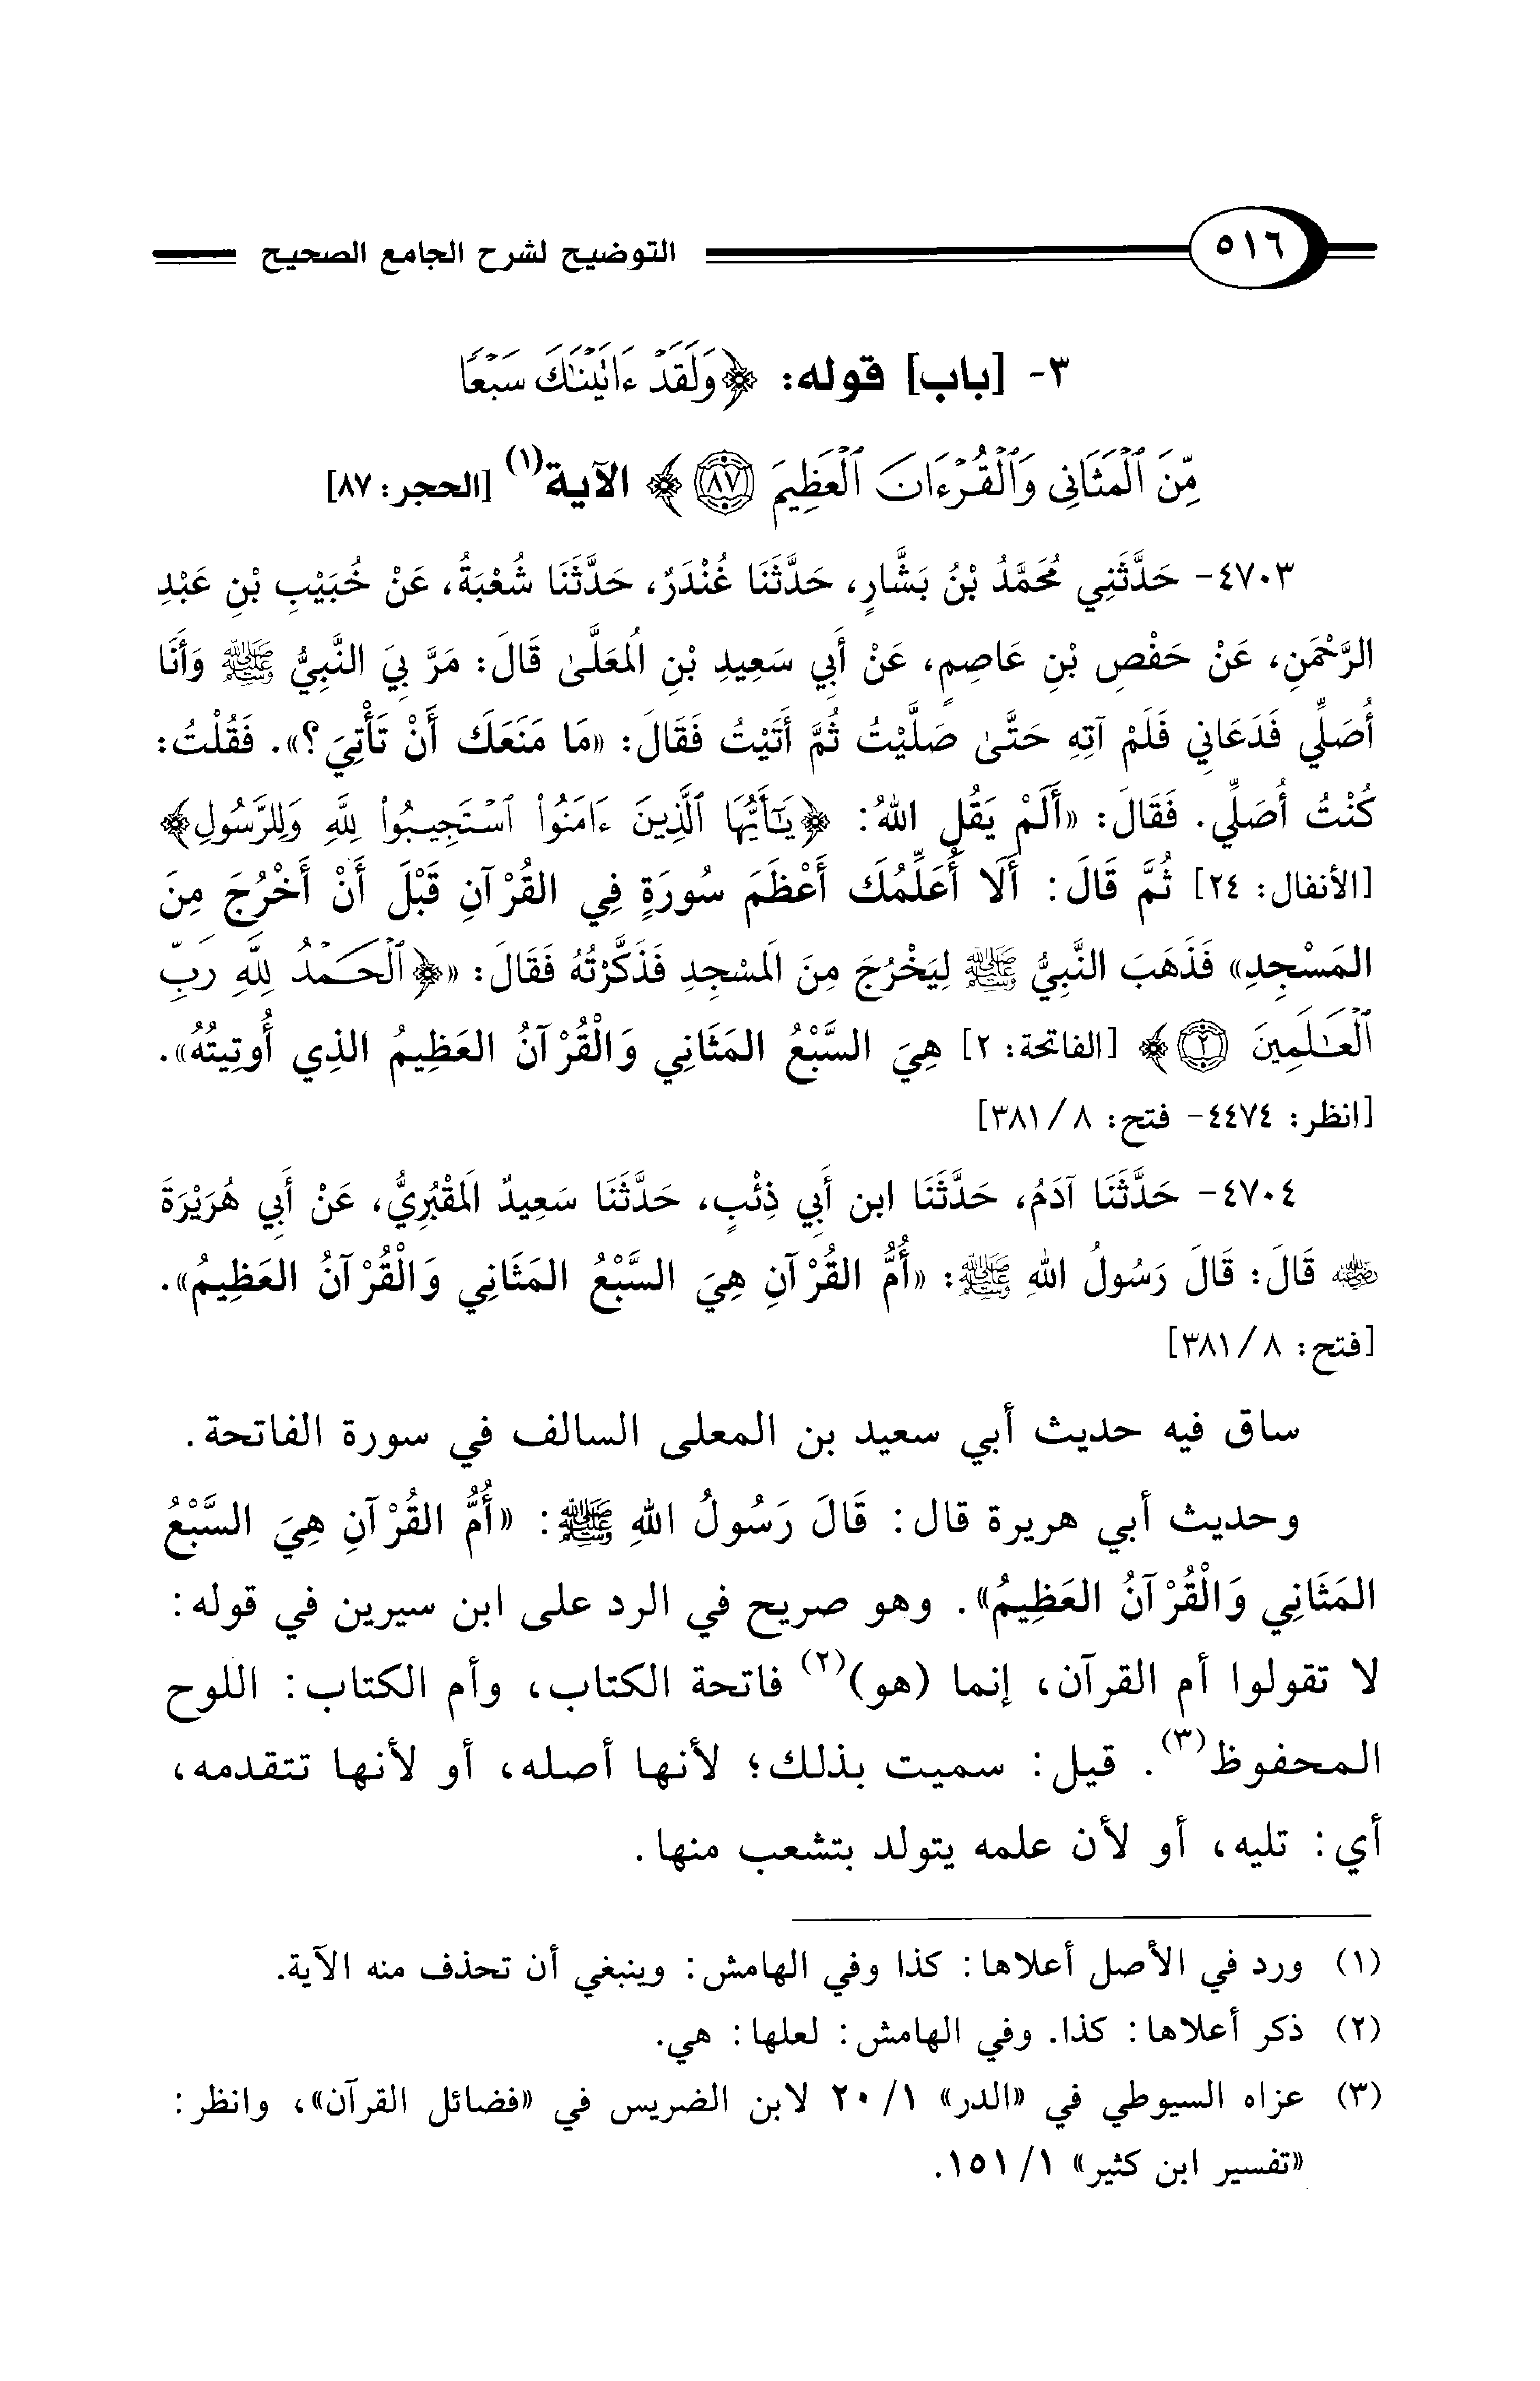 ٥١٦ التوضيح لشرح الجامع الصحيح
٣- [باب] قوله: ﴿وَلَقَدۡ ءَاتَيۡنَٰكَ سَبۡعٗا
مِّنَ ٱلۡمَثَانِي وَٱلۡقُرۡءَانَ ٱلۡعَظِيمَ ٨٧﴾ الآية(١) [الحجر: ٨٧]
٤٧٠٣- حَدَّثَنِي مُحَمَّدُ بْنُ بَشَّارٍ، حَدَّثَنَا غُنْدَرٌ، حَدَّثَنَا شُعْبَةُ، عَنْ خُبَيْبِ بْنِ عَبْدِ
الرَّحْمَنِ، عَنْ حَفْصِ بْنِ عَاصِمٍ، عَنْ أَبِي سَعِيدِ بْنِ الْمُعَلَّىٰ قَالَ: مَرَّ بِيَ النَّبِيُّ ﷺ وَأَنَا
أُصَلِّي فَدَعَانِي فَلَمْ آتِهِ حَتَّىٰ صَلَّيْتُ ثُمَّ أَتَيْتُ فَقَالَ: «مَا مَنَعَكَ أَنْ تَأْتِيَ؟». فَقُلْتُ:
كُنْتُ أُصَلِّي. فَقَالَ: «أَلَمْ يَقُلِ اللهُ: ﴿يَٰٓأَيُّهَا ٱلَّذِينَ ءَامَنُواْ ٱسۡتَجِيبُواْ لِلَّهِ وَلِلرَّسُولِ﴾
[الأنفال: ٢٤] ثُمَّ قَالَ: أَلَا أُعَلِّمُكَ أَعْظَمَ سُورَةٍ فِي القُرْآنِ قَبْلَ أَنْ أَخْرُجَ مِنَ
المَسْجِدِ» فَذَهَبَ النَّبِيُّ ﷺ لِيَخْرُجَ مِنَ الَمْسْجِدِ فَذَكَّرْتُهُ فَقَالَ: «﴿ٱلۡحَمۡدُ لِلَّهِ رَبِّ
ٱلۡعَٰلَمِينَ ٢﴾ [الفاتحة: ٢] هِيَ السَّبْعُ المَثَانِي وَالْقُرْآنُ العَظِيمُ الذِي أُوتِيتُهُ».
[انظر: ٤٤٧٤- فتح: ٨/ ٣٨١]
٤٧٠٤- حَدَّثَنَا آدَمُ، حَدَّثَنَا ابن أَبِي ذِئْبٍ، حَدَّثَنَا سَعِيدٌ الَمقْبُرِيُّ، عَنْ أَبِي هُرَيْرَةَ
رضي الله عنه قَالَ: قَالَ رَسُولُ اللهِ ﷺ: «أُمُّ القُرْآنِ هِيَ السَّبْعُ المَثَانِي وَالْقُرْآنُ العَظِيمُ».
[فتح: ٨/ ٣٨١]
ساق فيه حديث أبي سعيد بن المعلى السالف في سورة الفاتحة.
وحديث أبي هريرة قال: قَالَ رَسُولُ اللهِ ﷺ: «أُمُّ القُرْآنِ هِيَ السَّبْعُ
المَثَانِي وَالْقُرْآنُ العَظِيمُ». وهو صريح في الرد على ابن سيرين في قوله:
لا تقولوا أم القرآن، إنما (هو)(٢) فاتحة الكتاب، وأم الكتاب: اللوح
المحفوظ(٣). قيل: سميت بذلك؛ لأنها أصله، أو لأنها تتقدمه،
أي: تليه، أو لأن علمه يتولد بتشعب منها.
(١) ورد في الأصل أعلاها: كذا وفي الهامش: وينبغي أن تحذف منه الآية.
(٢) ذكر أعلاها: كذا. وفي الهامش: لعلها: هي.
(٣) عزاه السيوطي في «الدر» ١/ ٢٠ لابن الضريس في «فضائل القرآن»، وانظر:
«تفسير ابن كثير» ١/ ١٥١.